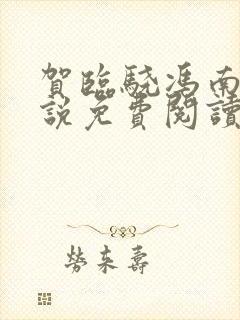 賀臨驍馮南
說免費閱讀
勞來壽